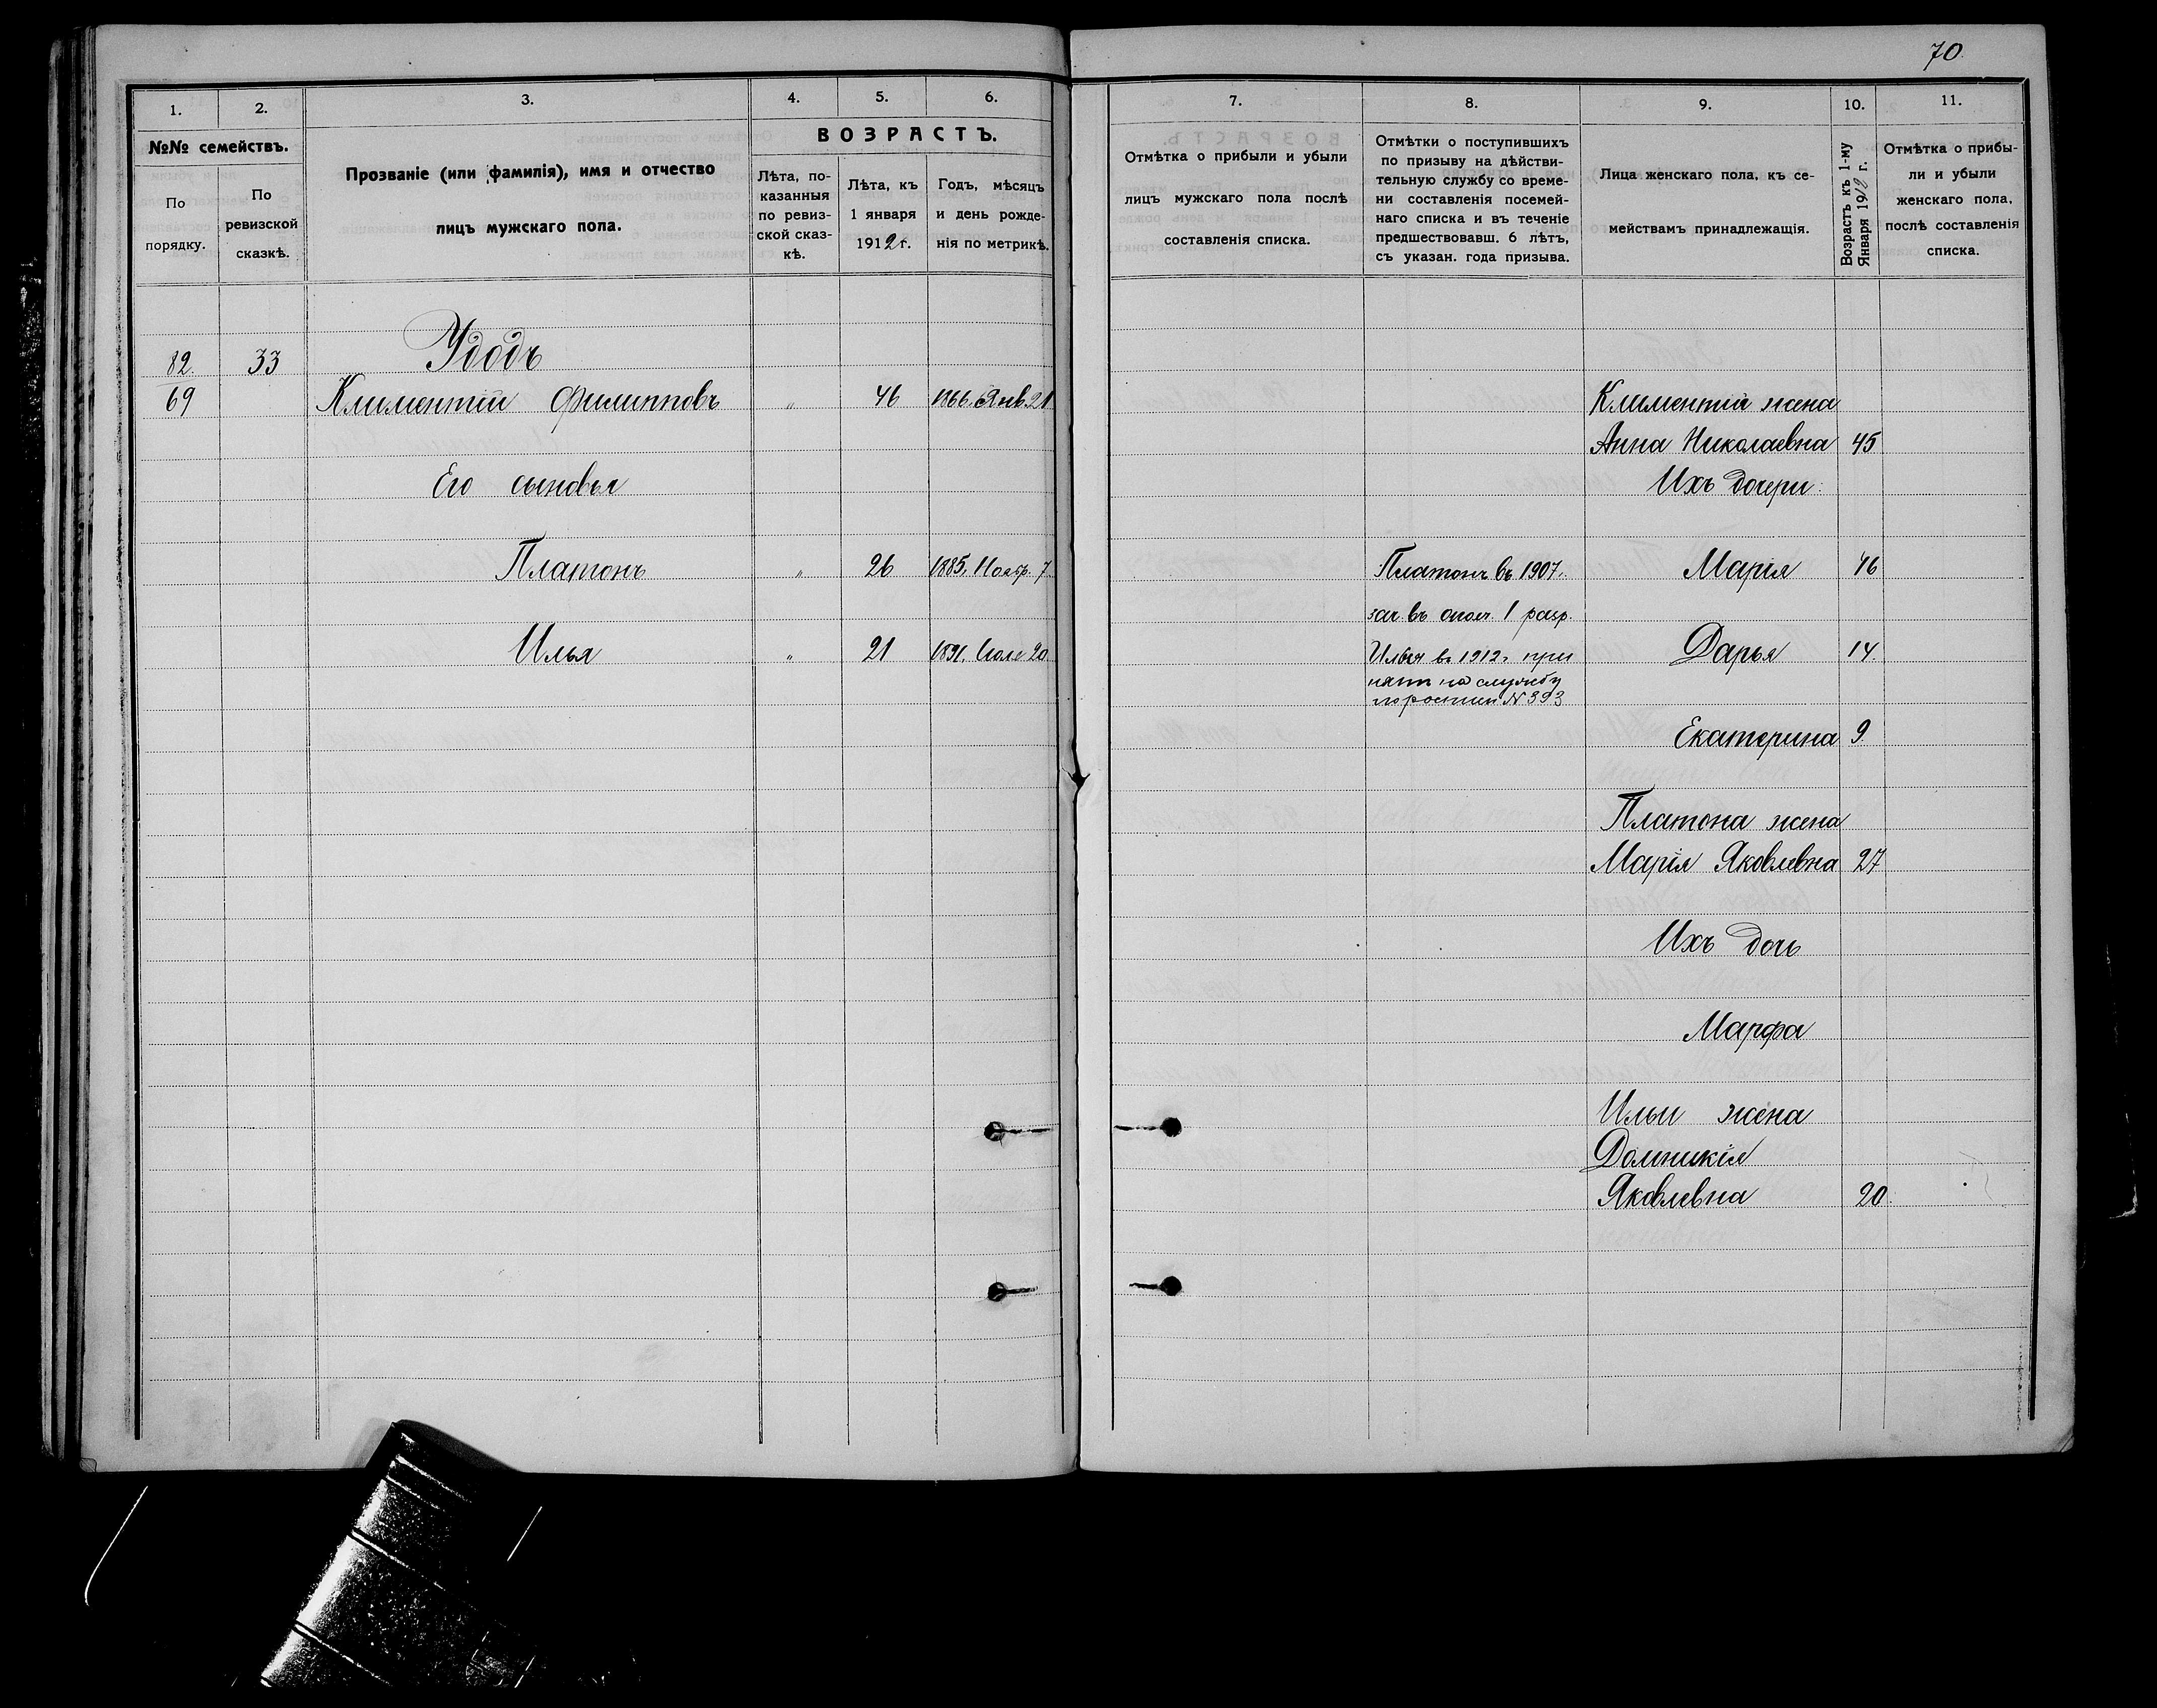 70.
1.
2.
3.
4.
5.
6.
№№ семействъ.
По
порядку.
По
ревизской
сказкѣ.
Прозваніе (или фамилія), имя и отчество
лицъ мужскаго пола.
ВОЗРАСТЪ.
Лѣта, по-
казанныя
по ревиз-
ской сказ-
кѣ.
Лѣта, къ
1 января
1912 г.
Годъ, мѣсяцъ
и день рожде-
нія по метрикѣ.
82.
33
Удодъ
69
Климентій Филипповъ
„
46
1866. Янв. 21.
Его сыновья
Платонъ
„
26
1885. Ноябр. 7.
Илья
„
21
1891. Іюля 20.
7.
8.
9.
10.
11.
Отмѣтка о прибыли и убыли
лицъ мужскаго пола послѣ
составленія списка.
Отмѣтки о поступившихъ
по призыву на дѣйстви-
тельную службу со време-
ни составленія посемей-
наго списка и въ теченіе
предшествовавш. 6 лѣтъ,
съ указан. года призыва.
Лица женскаго пола, къ се-
мействамъ принадлежащія.
Возрастъ къ 1-му
Января 1912 г.
Отмѣтка о прибы-
ли и убыли
женскаго пола,
послѣ составленія
списка.
Климентія жена
Анна Николаевна 45
Ихъ дочери:
Платонъ въ 1907 г.
Марія 16
зач. въ ополч. 1 разр.
Илья въ 1912 г. при
Дарья 14.
нятъ на службу
№ 393
Екатерина 9.
Платона жена
Марія Яковлевна 27
Ихъ дочь
Марфа
Ильи жена
Домникія
Яковлевна 20.